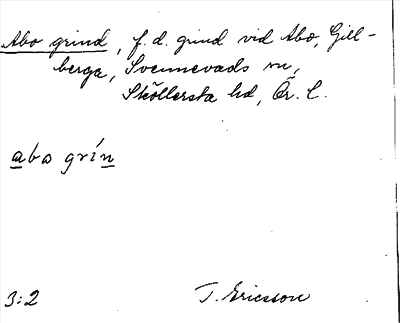 Abo grind, f.d. grind vid Abo, Gill-
berga, Svennevads sn,
Sköllersta hd, Ör. l.
abo grín
3:2 T. Ericsson